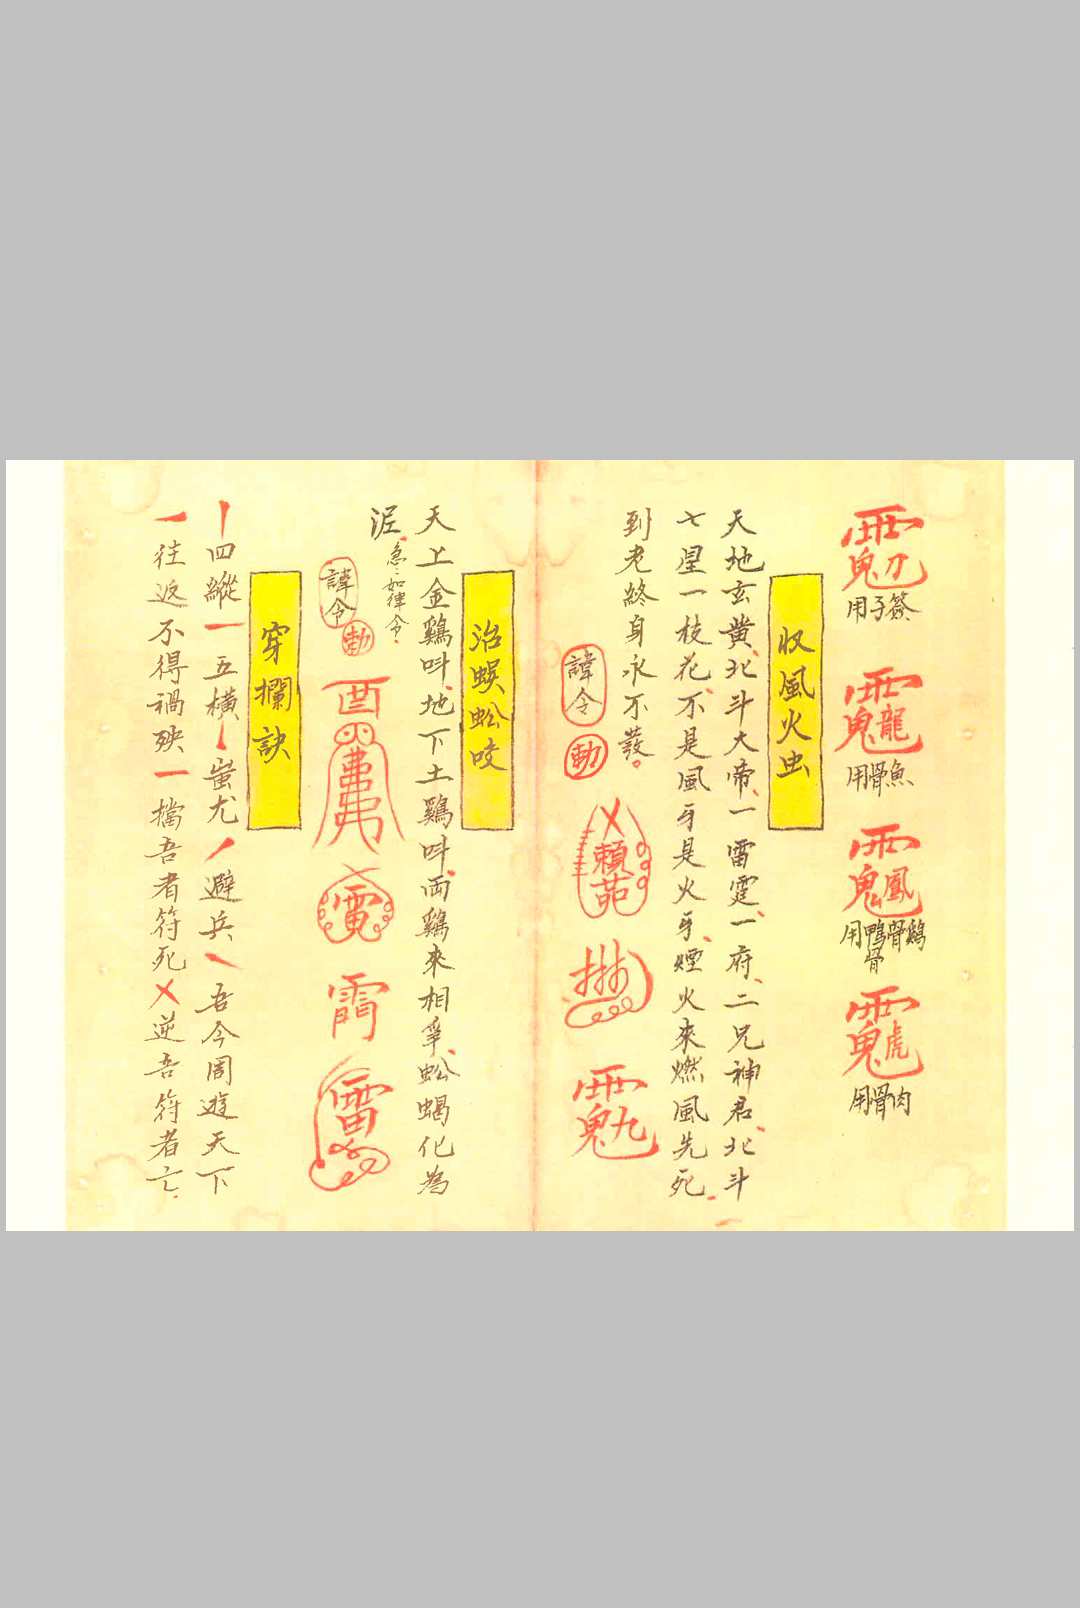 用子簽
用骨魚
用鴨骨鷄骨
用骨肉
収風火虫
天地玄黄、北斗大帝、一雷霆、一府、二兄神君、北斗
七星一枝花、不是風牙是火牙、煙火來燃風先死、
到老終身永不發。
諱令
勅
治蜈蚣咬
天上金鷄呌、地下土鷄呌、両鷄來相爭、蚣蝎化為
泥、急、如律令、
諱令
勅
穿攔訣
四縱一五橫丿蚩尤丿避兵乀吾今周遊天下
一往返不得禍殃一擋吾者符死乂逆吾符者亡、